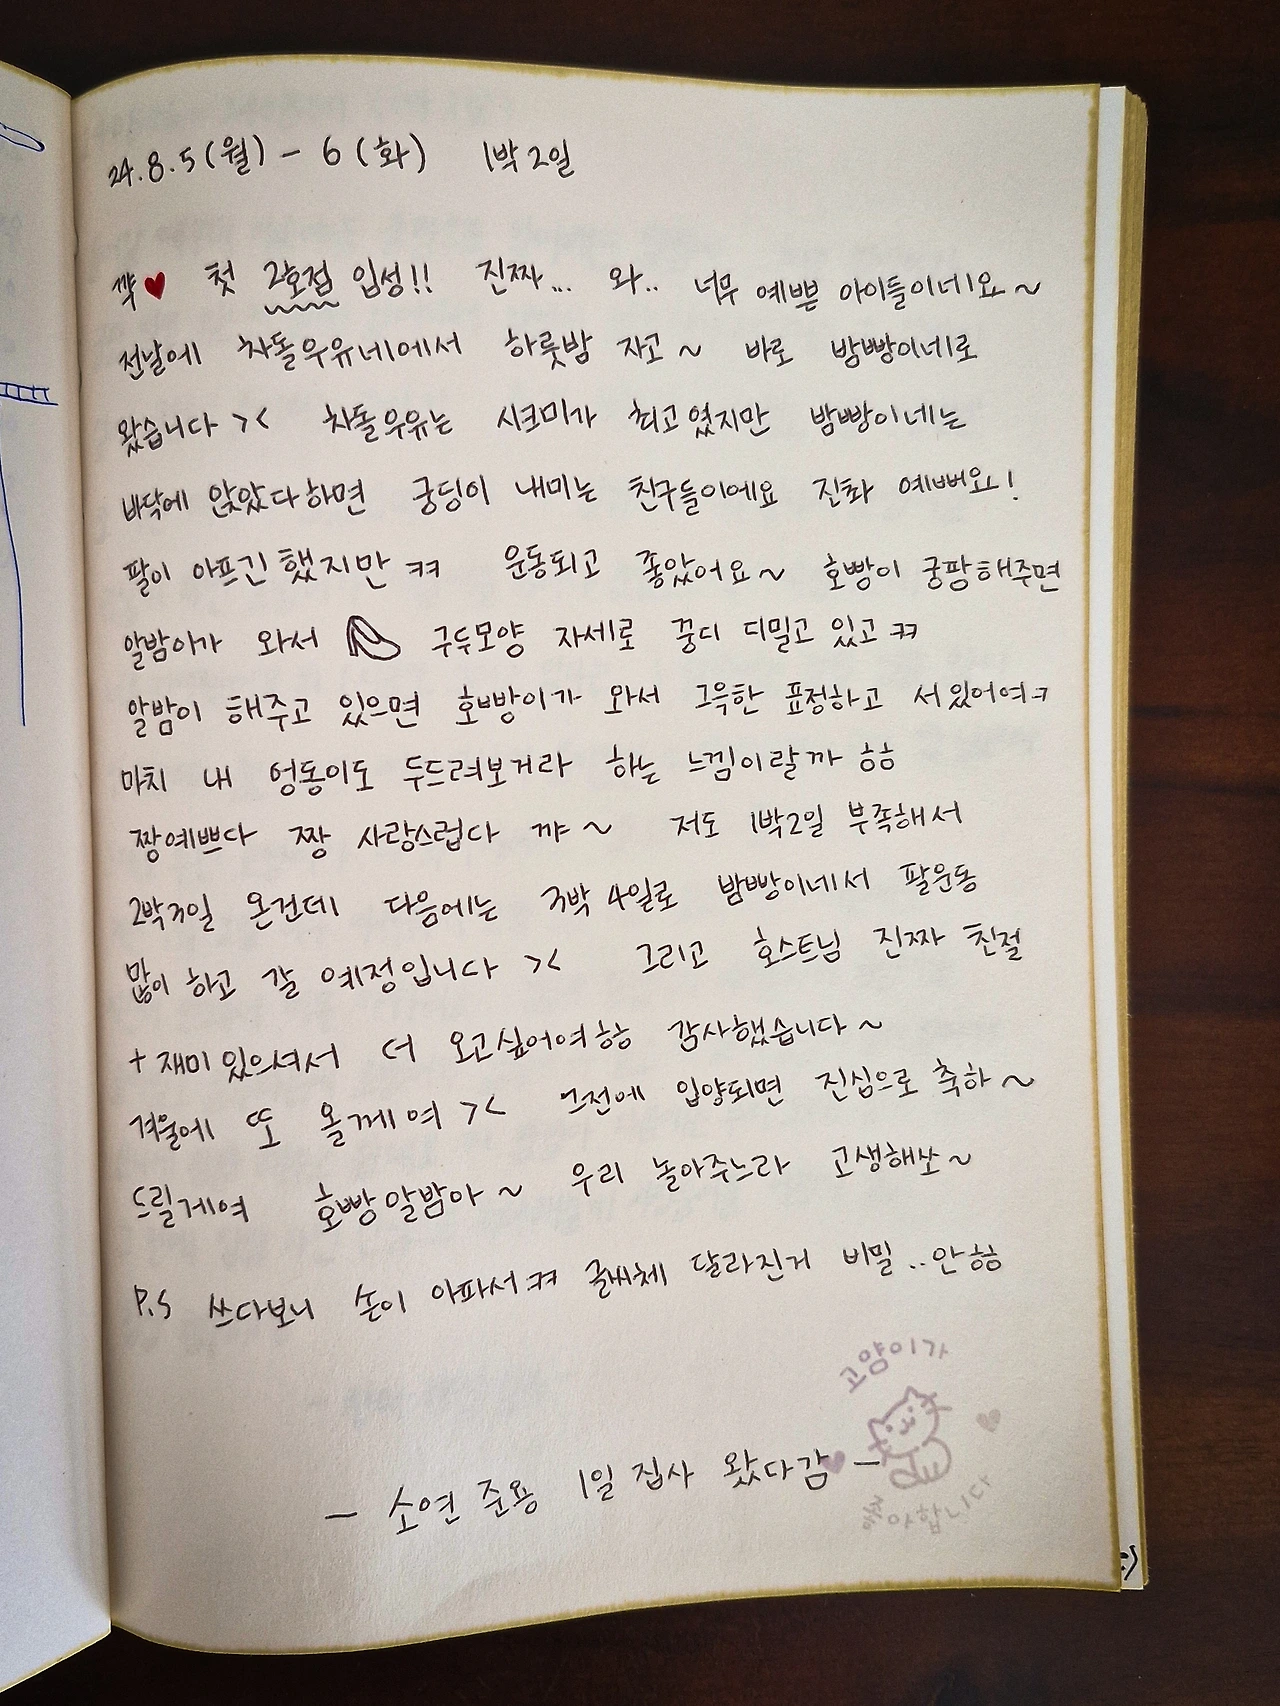 24.8.5(월) - 6(화) 1박 2일
꺅♥ 첫 2호점 입성!! 진짜... 와.. 너무 예쁜 아이들이네요~
전날에 차돌우유네에서 하룻밤 자고~ 바로 밤빵이네로
왔습니다 >< 차돌우유는 시크미가 최고였지만 밤빵이네는
바닥에 앉았다하면 궁딩이 내미는 친구들이에요 진촤 예뻐요!
팔이 아프긴 했지만 ㅋㅋ 운동되고 좋았어요~ 호빵이 궁팡해주면
알밤아가 와서 구두모양 자세로 꿍디 디밀고 있고 ㅋㅋ
알밤이 해주고 있으면 호빵이가 와서 그윽한 표정하고 서있어여ㅋ
마치 내 엉동이도 두드려보거라 하는 느낌이랄까 ㅎㅎ
짱예쁘다 짱 사랑스럽다 꺄~ 저도 1박2일 부족해서
2박3일 온건데 다음에는 3박 4일로 밤빵이네서 팔운동
많이 하고 갈 예정입니다 >< 그리고 호스트님 진짜 친절
+ 재미있으셔서 더 오고싶어여ㅎㅎ 감사했습니다~
겨울에 또 올께여 >< 그전에 입양되면 진심으로 축하~
드릴게여 호빵알밤아~ 우리 놀아주느라 고생해쏘~
P.S 쓰다보니 손이 아파서ㅋㅋ 글씨체 달라진거 비밀..안ㅎㅎ
고양이가
좋아합니다
- 소연 준용 1일 집사 왔다감 -